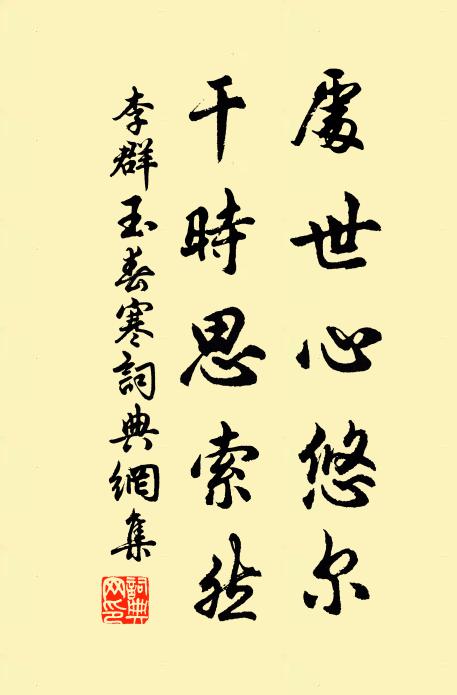 處世心悠尔
干時思索然
李群玉春寒詞典網集
詞典網印